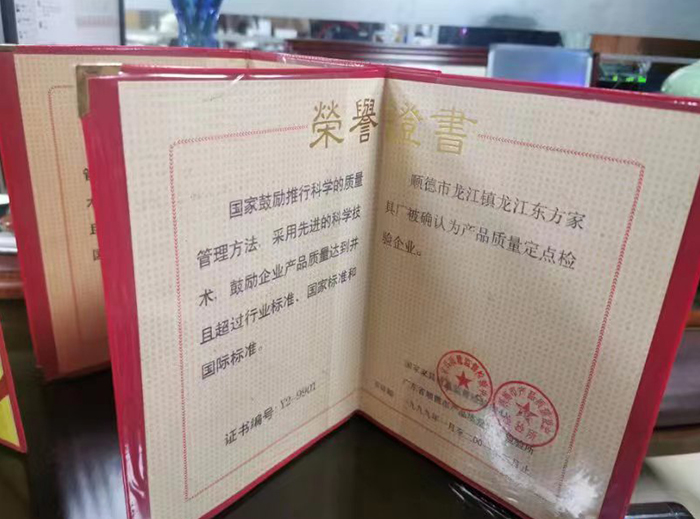 榮譽證書
国家鼓励推行科学的质量
管理方法，采用先进的科学技
术，鼓励企业产品质量达到并
且超过行业标准、国家标准和
国际标准。
证书编号 Y2-9907
顺德市龙江镇龙江东方家
具厂被确认为产品质量定点检
验企业。